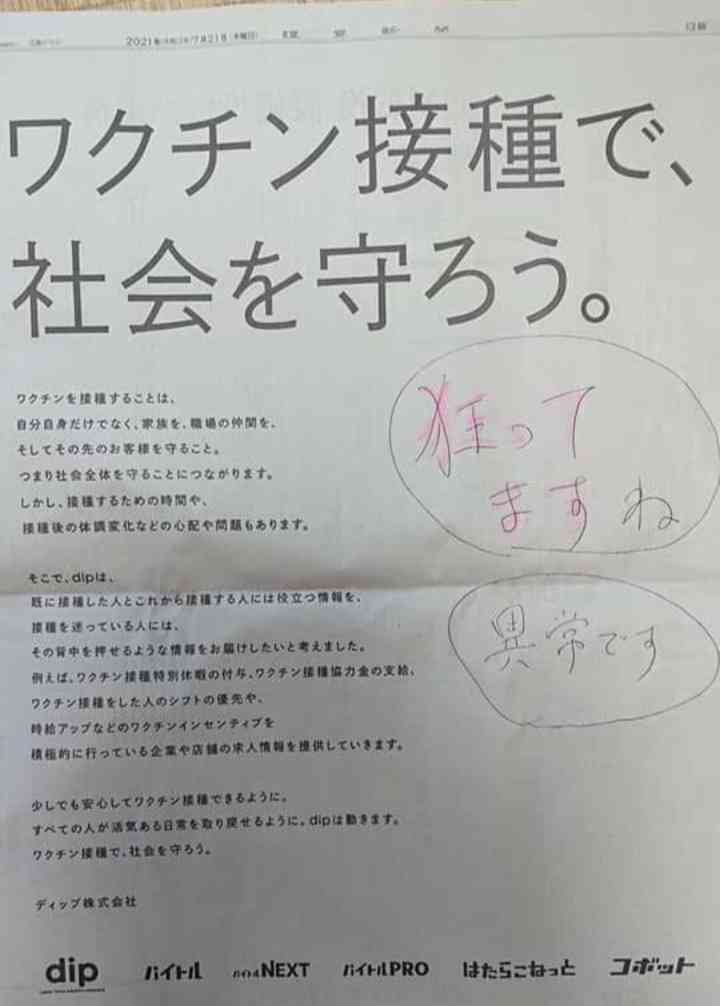 2021年(令和3年)7月21日(水曜日) 読売新聞
ワクチン接種で、
社会を守ろう。
ワクチンを接種することは、
自分自身だけでなく、家族を、職場の仲間を、
そしてその先のお客様を守ること。
つまり社会全体を守ることにつながります。
しかし、接種するための時間や、
接種後の体調変化などの心配や問題もあります。
狂って
ますね
異常です
そこで、dipは、
既に接種した人とこれから接種する人には役立つ情報を、
接種を迷っている人には、
その背中を押せるような情報をお届けしたいと考えました。
例えば、ワクチン接種特別休暇の付与、ワクチン接種協力金の支給、
ワクチン接種をした人のシフトの優先や、
時給アップなどのワクチンインセンティブを
積極的に行っている企業や店舗の求人情報を提供していきます。
少しでも安心してワクチン接種できるように。
すべての人が活気ある日常を取り戻せるように。dipは動きます。
ワクチン接種で、社会を守ろう。
ディップ株式会社
dip バイトル バイトルNEXT バイトルPRO はたらこねっと コボット